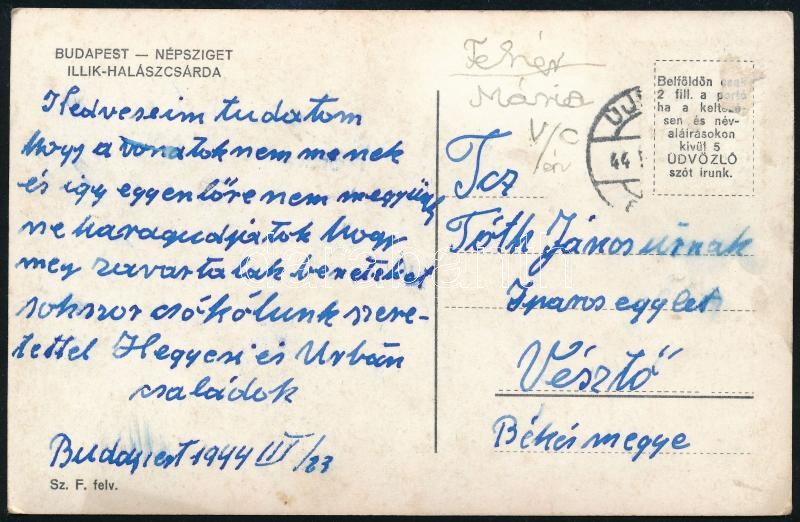 BUDAPEST — NÉPSZIGET
ILLIK-HALÁSZCSÁRDA
Kedveseim tudatom
hogy a vonatok nem menek
és igy egyenlőre nem megyünk
ne haragudjatok hogy
meg zavartalak beneteket
sokszor csókólunk szere-
tettel Hegyesi és Urbán
családok
Budapest 1944 III/23
Sz. F. felv.
Fehér
Mária
V/C
Belföldön csak
2 fill. a portó
ha a keltezé-
sen és név-
aláirásokon
kivül 5
ÜDVÖZLŐ
szót irunk.
44
Tcz
Tóth János úrnak
Iparos egylet
Vésztő
Békés megye